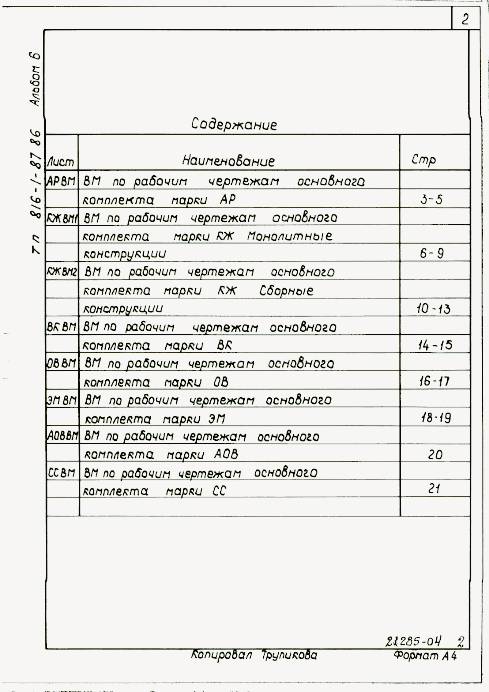 2
ТП 816-1-87 86 Альбом 6
Содержание
Лист Наименование Стр
АР ВМ ВМ по рабочим чертежам основного
комплекта марки АР 3-5
КЖ ВМ1 ВМ по рабочим чертежам основного
комплекта марки КЖ Монолитные
конструкции 6-9
КЖ ВМ2 ВМ по рабочим чертежам основного
комплекта марки КЖ Сборные
конструкции 10-13
ВК ВМ ВМ по рабочим чертежам основного
комплекта марки ВК 14-15
ОВ ВМ ВМ по рабочим чертежам основного
комплекта марки ОВ 16-17
ЭМ ВМ ВМ по рабочим чертежам основного
комплекта марки ЭМ 18-19
АОВ ВМ ВМ по рабочим чертежам основного
комплекта марки АОВ 20
СС ВМ ВМ по рабочим чертежам основного
комплекта марки СС 21
21285-04 2
Копировал Трупикова Формат А4